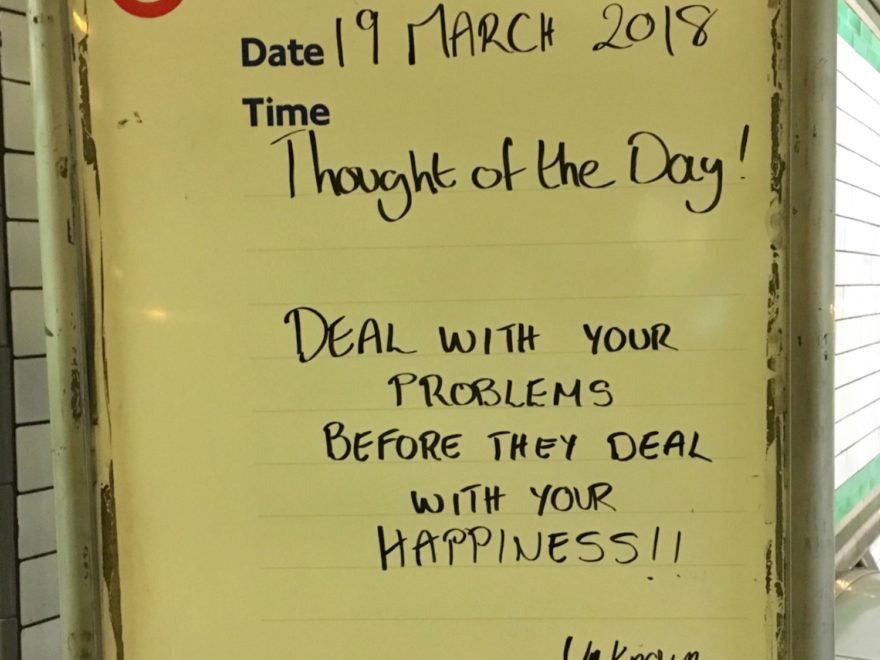 Date 19 MARCH 2018
Time
Thought of the Day!
DEAL WITH YOUR
PROBLEMS
BEFORE THEY DEAL
WITH YOUR
HAPPINESS!!
Unknown